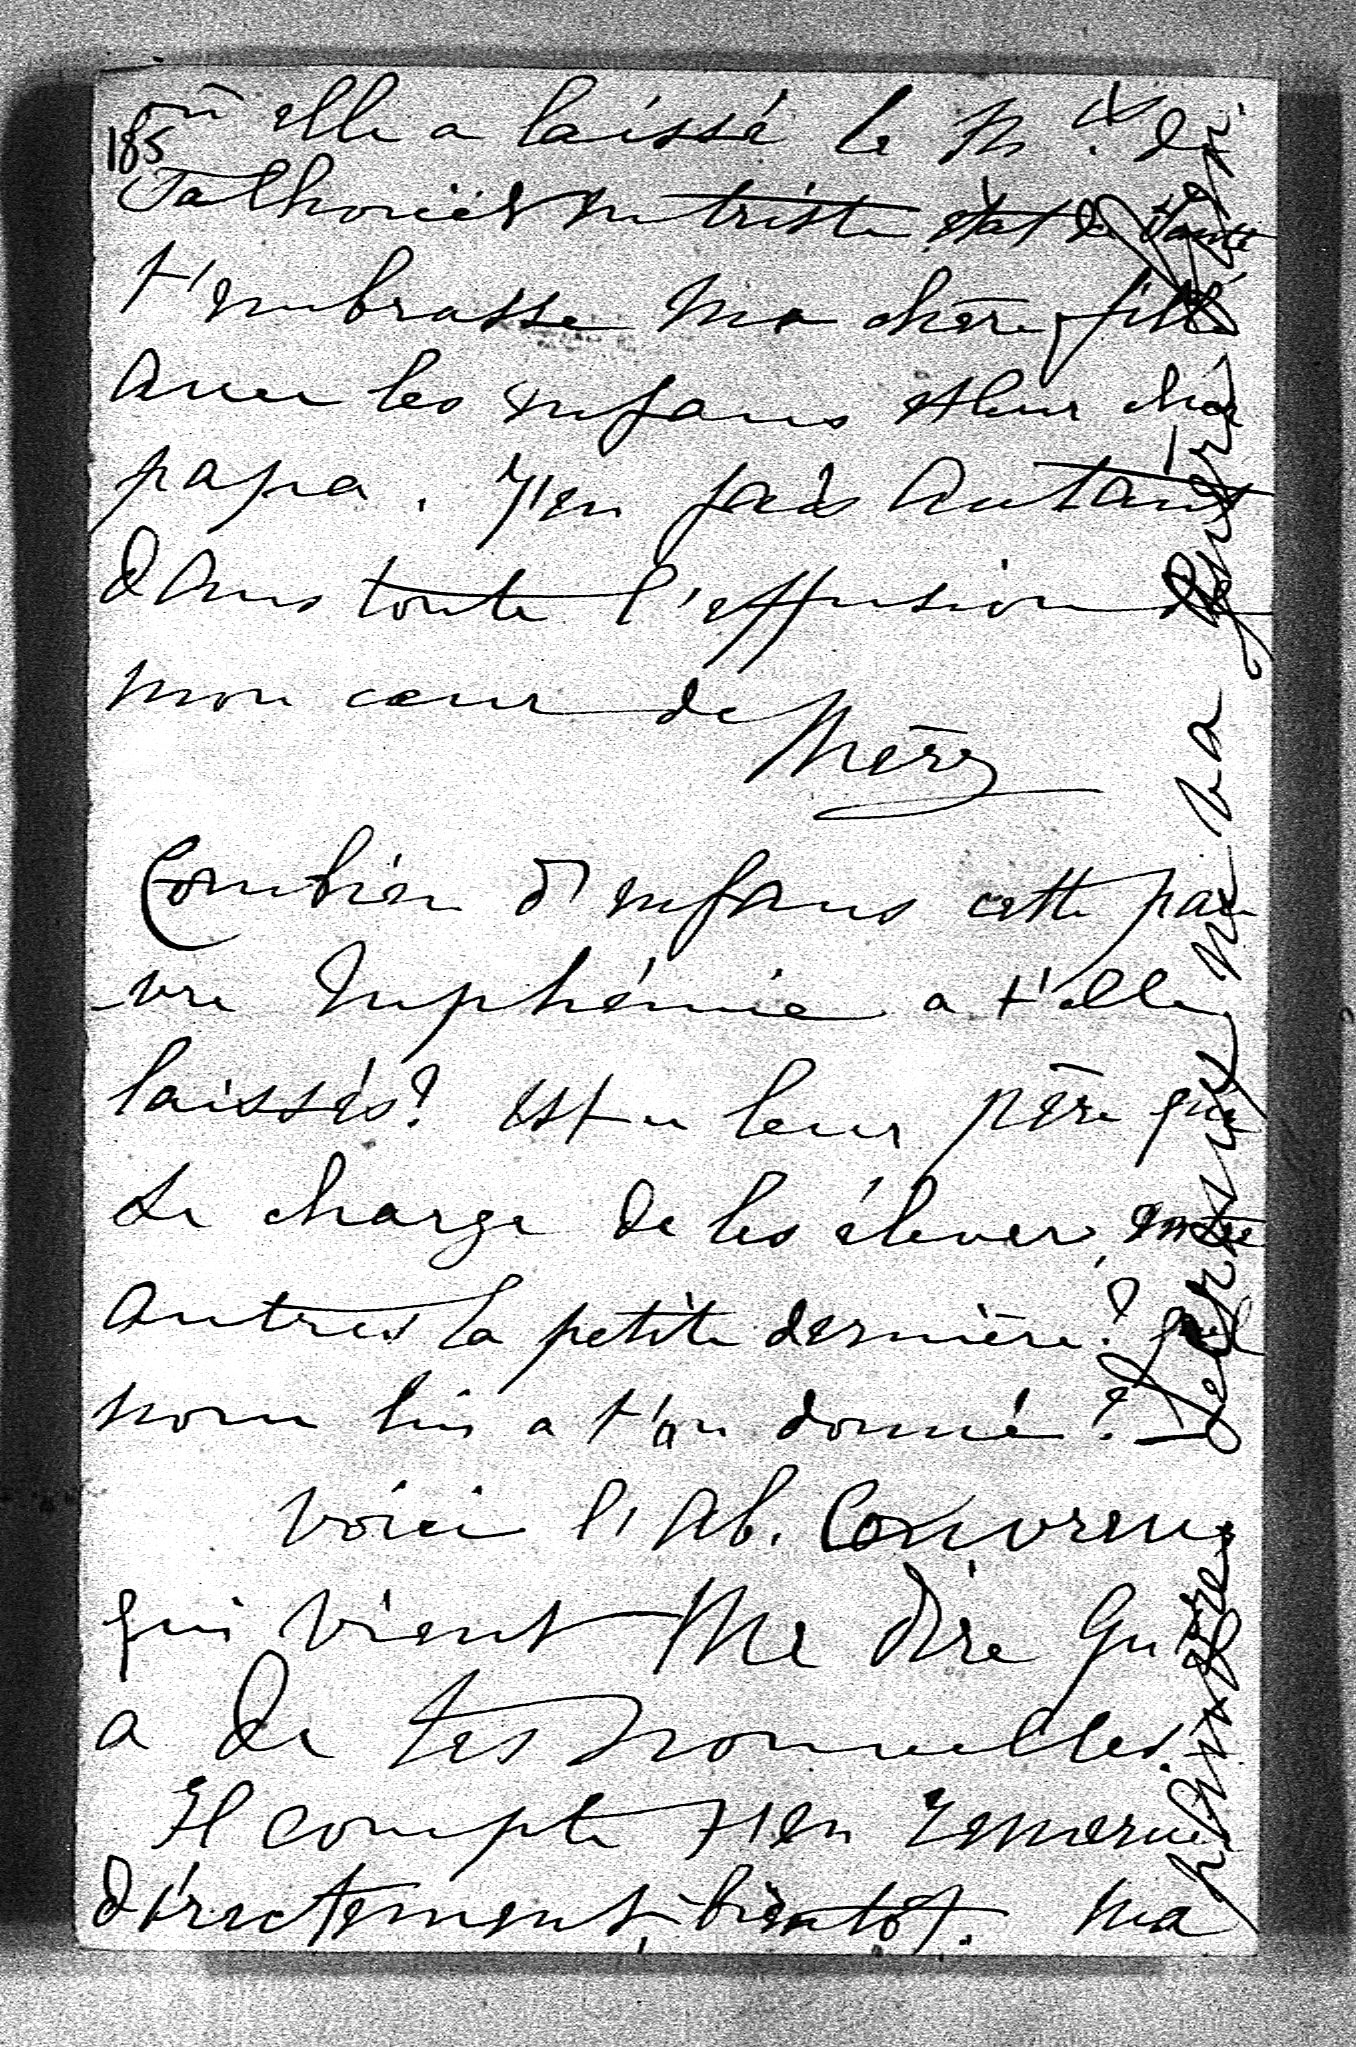 185
où elle a laissé le M. is de
Talhouët en triste état de santé
t'embrasse ma chère fille
avec les enfans et leur cher
papa. J'en fais autant
dans toute l'effusion de
mon cœur de Mère
Combien d'enfans cette pau
-vre Euphémie a t'elle
laissés? est ce leur père qui
se charge de les élever, entre
autres la petite dernière? quel
nom lui a t'on donné?
voici l'Ab. Couvreux
qui vient me dire qu'il
a de tes nouvelles.
Il compte t'en remercier
directement bientôt. Ma
pleurésie
est venue
va
guérie